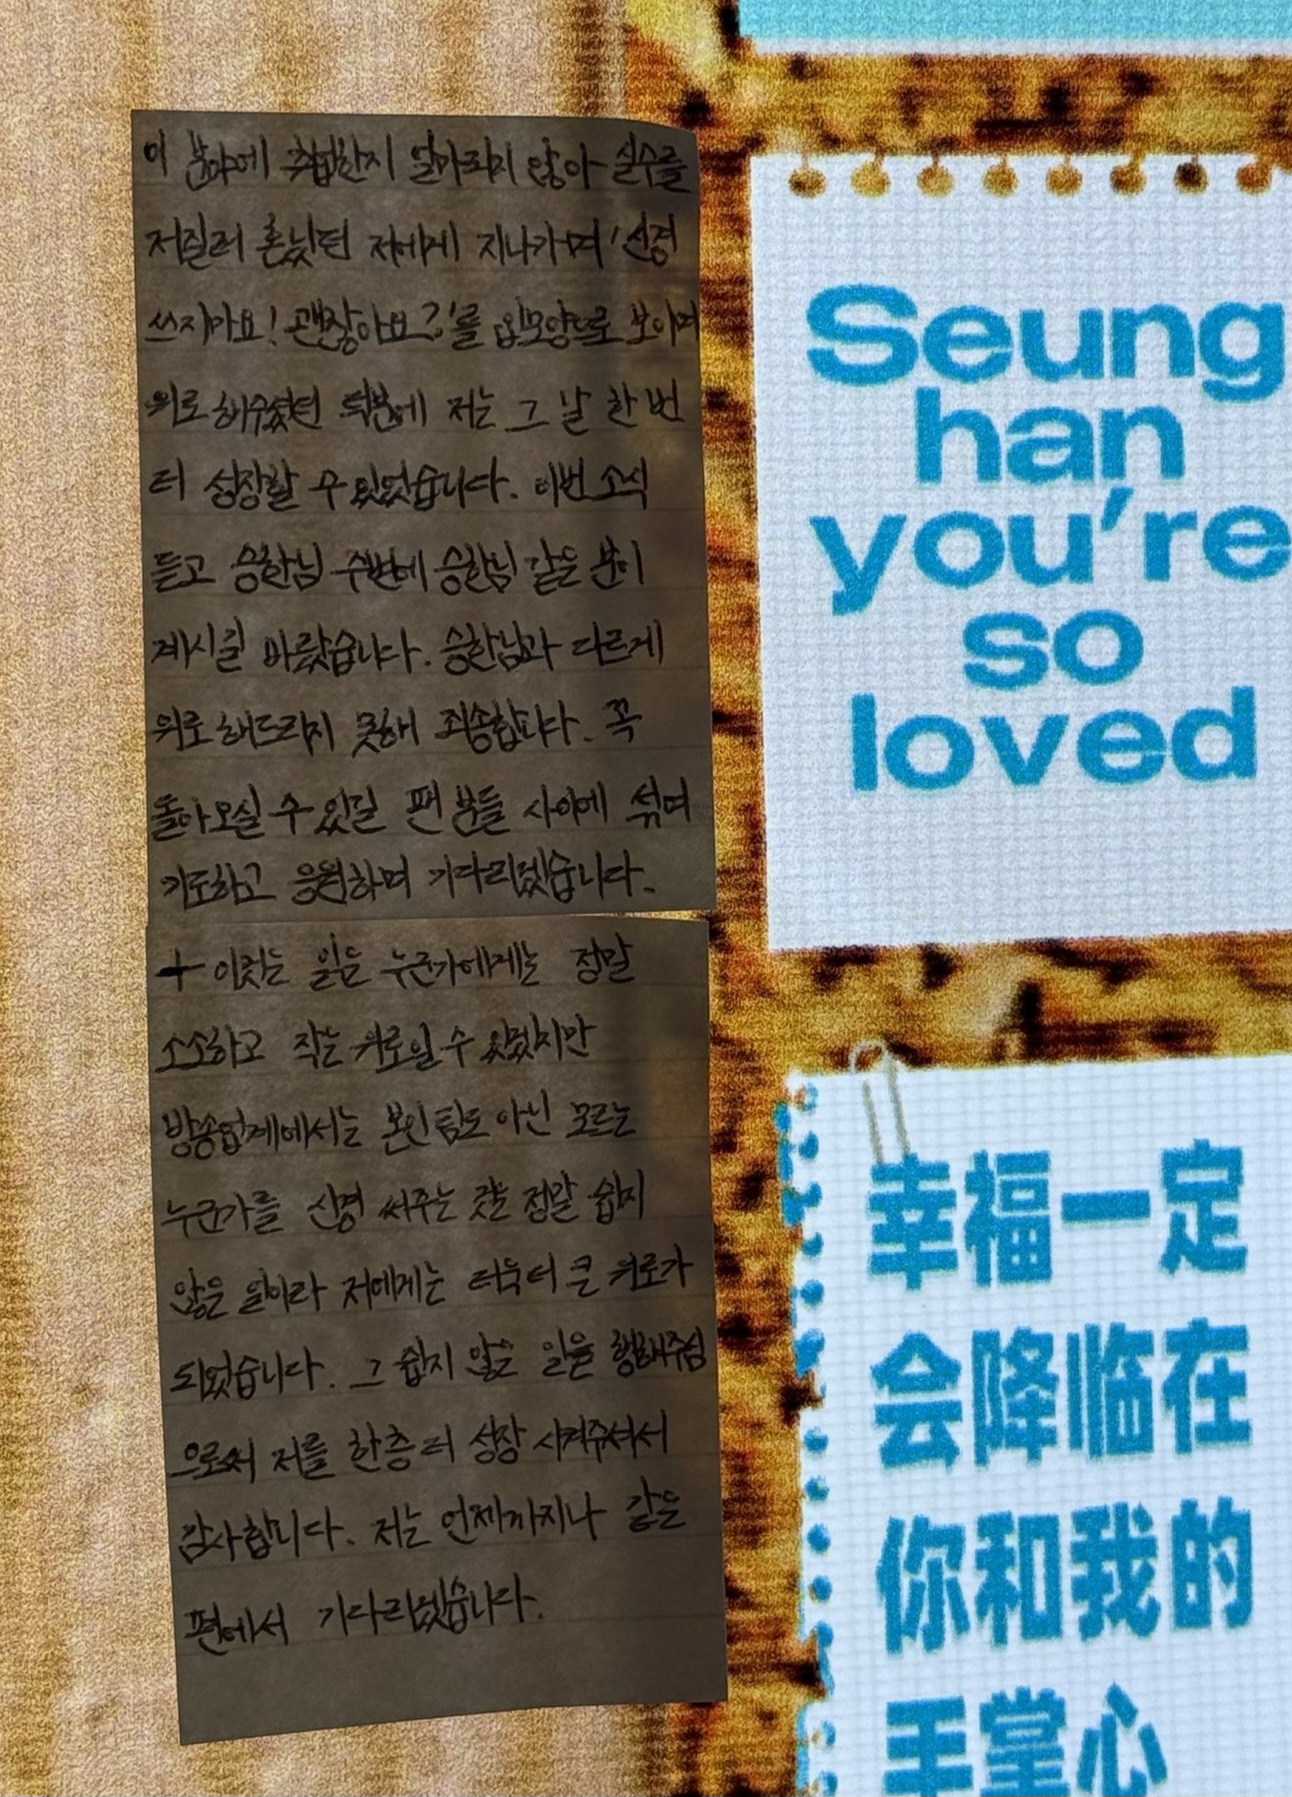 이 분야에 취업한지 얼마되지 않아 실수를
저질러 혼났던 저에게 지나가며 '신경
쓰지마요! 괜찮아요?'를 입모양으로 보이며
위로해주셨던 덕분에 저는 그 날 한 번
더 성장할 수 있었습니다. 이번 소식
듣고 승한님 주변에 승한님 같은 분이
계시길 바랐습니다. 승한님과 다르게
위로해드리지 못해 죄송합니다. 꼭
돌아오실 수 있길 팬 분들 사이에 섞여
기도하고 응원하며 기다리겠습니다.
+ 이것는 읽는 누군가에게는 정말
소소하고 작은 위로일 수 있겠지만
방송업계에서는 본인팀도 아닌 모르는
누군가를 신경 써주는 것은 정말 쉽지
않은 일이라 저에게는 더욱더 큰 위로가
되었습니다. 그 쉽지 않은 일을 행해주심
으로써 저를 한층 더 성장 시켜주셔서
감사합니다. 저는 언제까지나 같은
편에서 기다리겠습니다.
Seung
han
you're
so
loved
幸福一定
会降临在
你和我的
手掌心